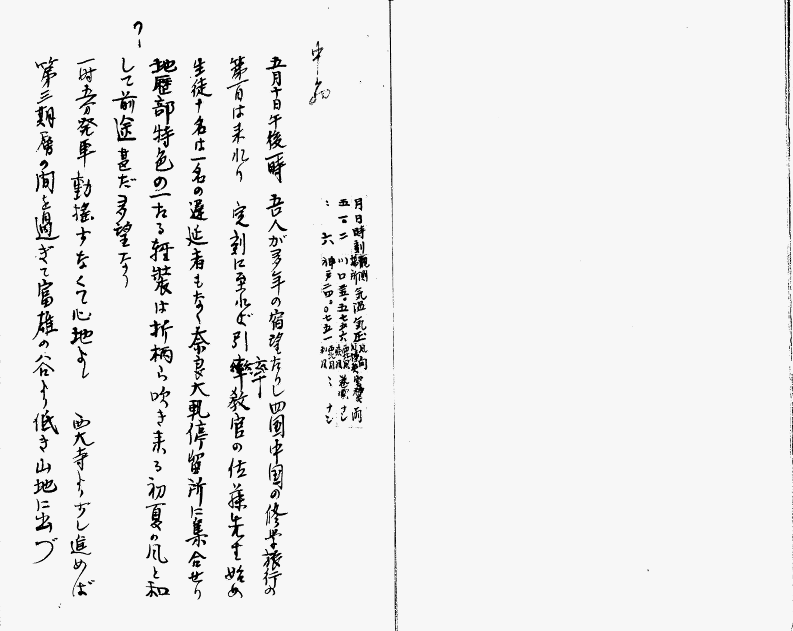 月日時刻観測場所気温気圧風向
五月十日午後一時 吾人が多年の宿望たりし四国中国の修学旅行の
第一日は来れり 定刻に至れば引率教官の佐藤先生始め
生徒十名は一名の遅延者もなく奈良大軌停留所に集合せり
地歴部特色の一たる軽装は折柄ら吹き来る初夏の風と和
して前途甚だ多望なり
一時五分発車 動揺すなくて心地よし 西大寺より少し進めば
第三期層の間を過ぎて富雄の谷より低き山地に出づ